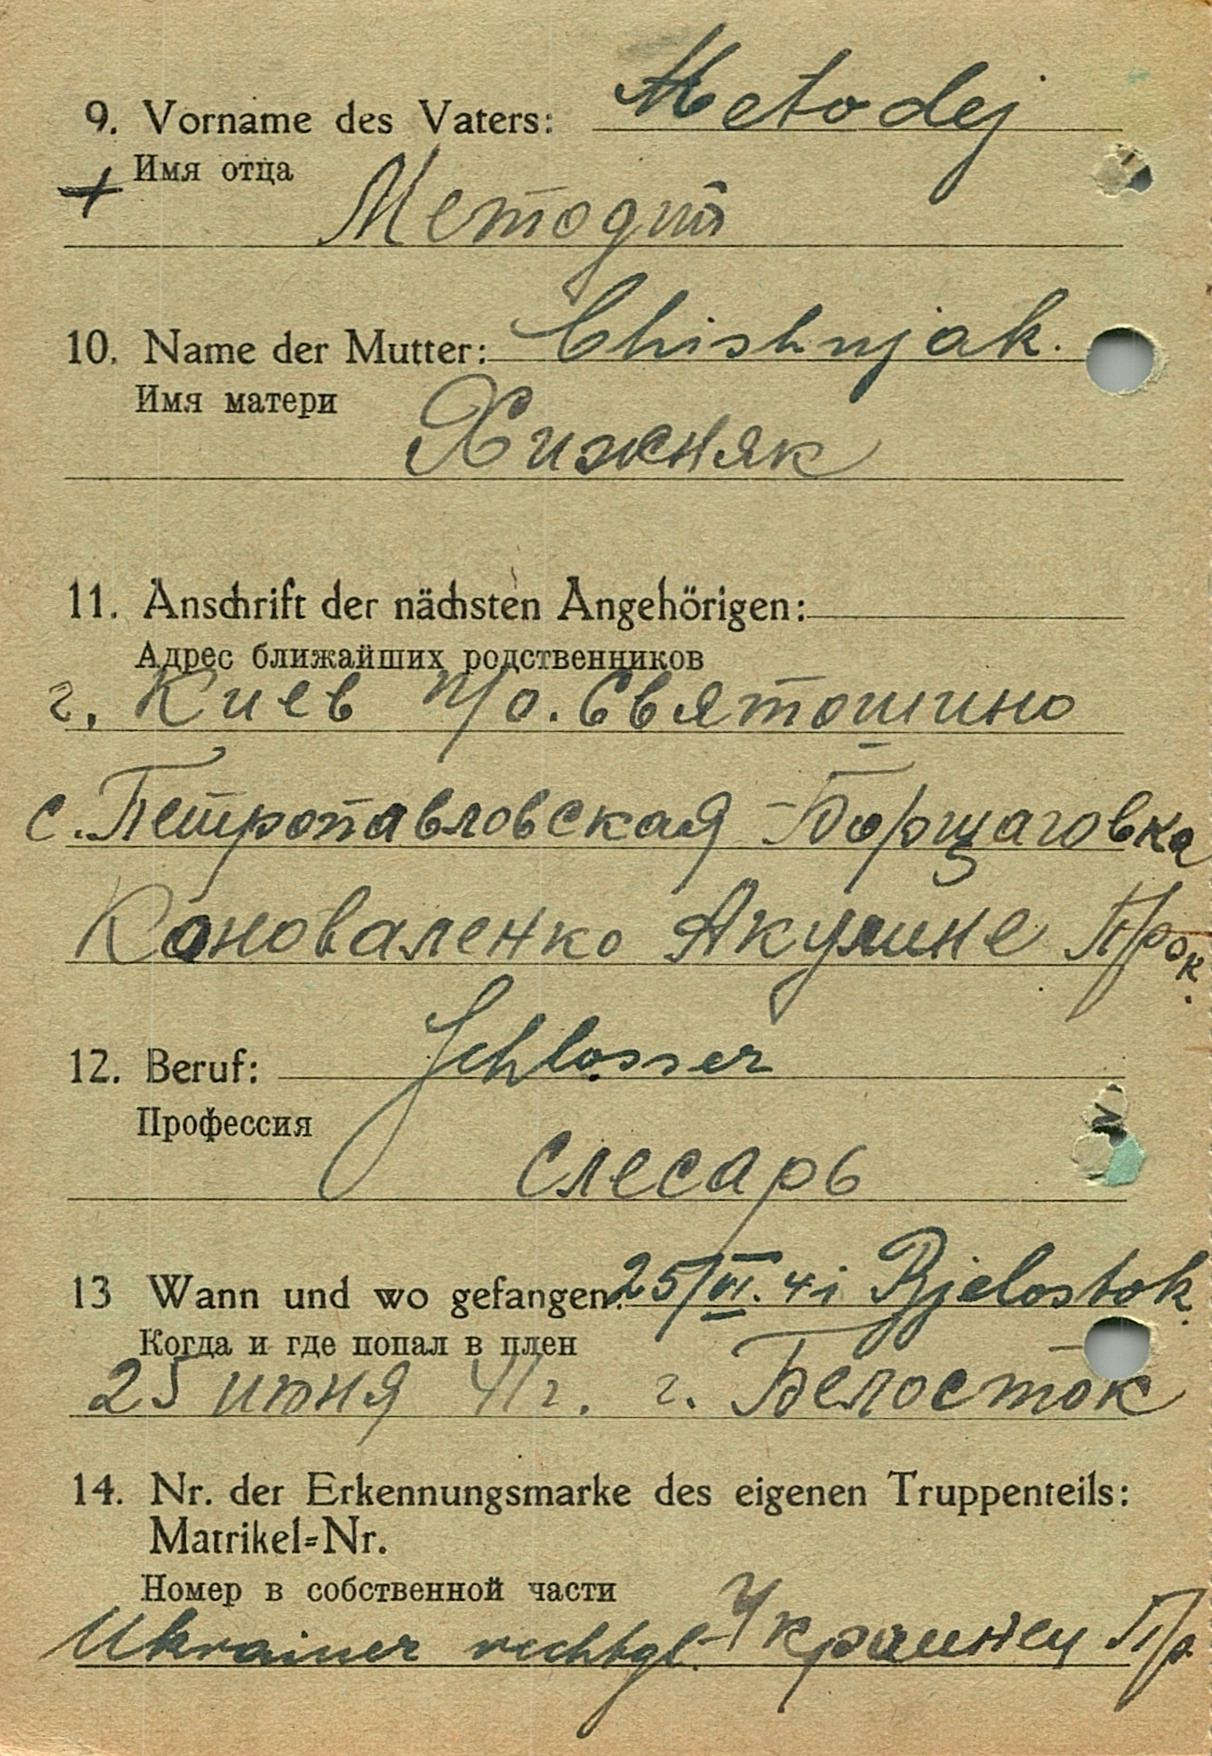 9. Vorname des Vaters: Metodej
Имя отца
Методий
10. Name der Mutter: Chishnjak.
Имя матери
Хижняк
11. Anschrift der nächsten Angehörigen:
Адрес ближайших родственников
г. Киев п/о. Святошино
с. Петропавловская-Борщаговка
Коноваленко Акулине Прок.
12. Beruf: Schlosser
Профессия
слесарь
13 Wann und wo gefangen: 25/VI. 41 Bjelostok.
Когда и где попал в плен
25 июня 41 г. г. Белосток
14. Nr. der Erkennungsmarke des eigenen Truppenteils:
Matrikel=Nr.
Номер в собственной части
Ukrainer rechtgl. Украинец Пр.